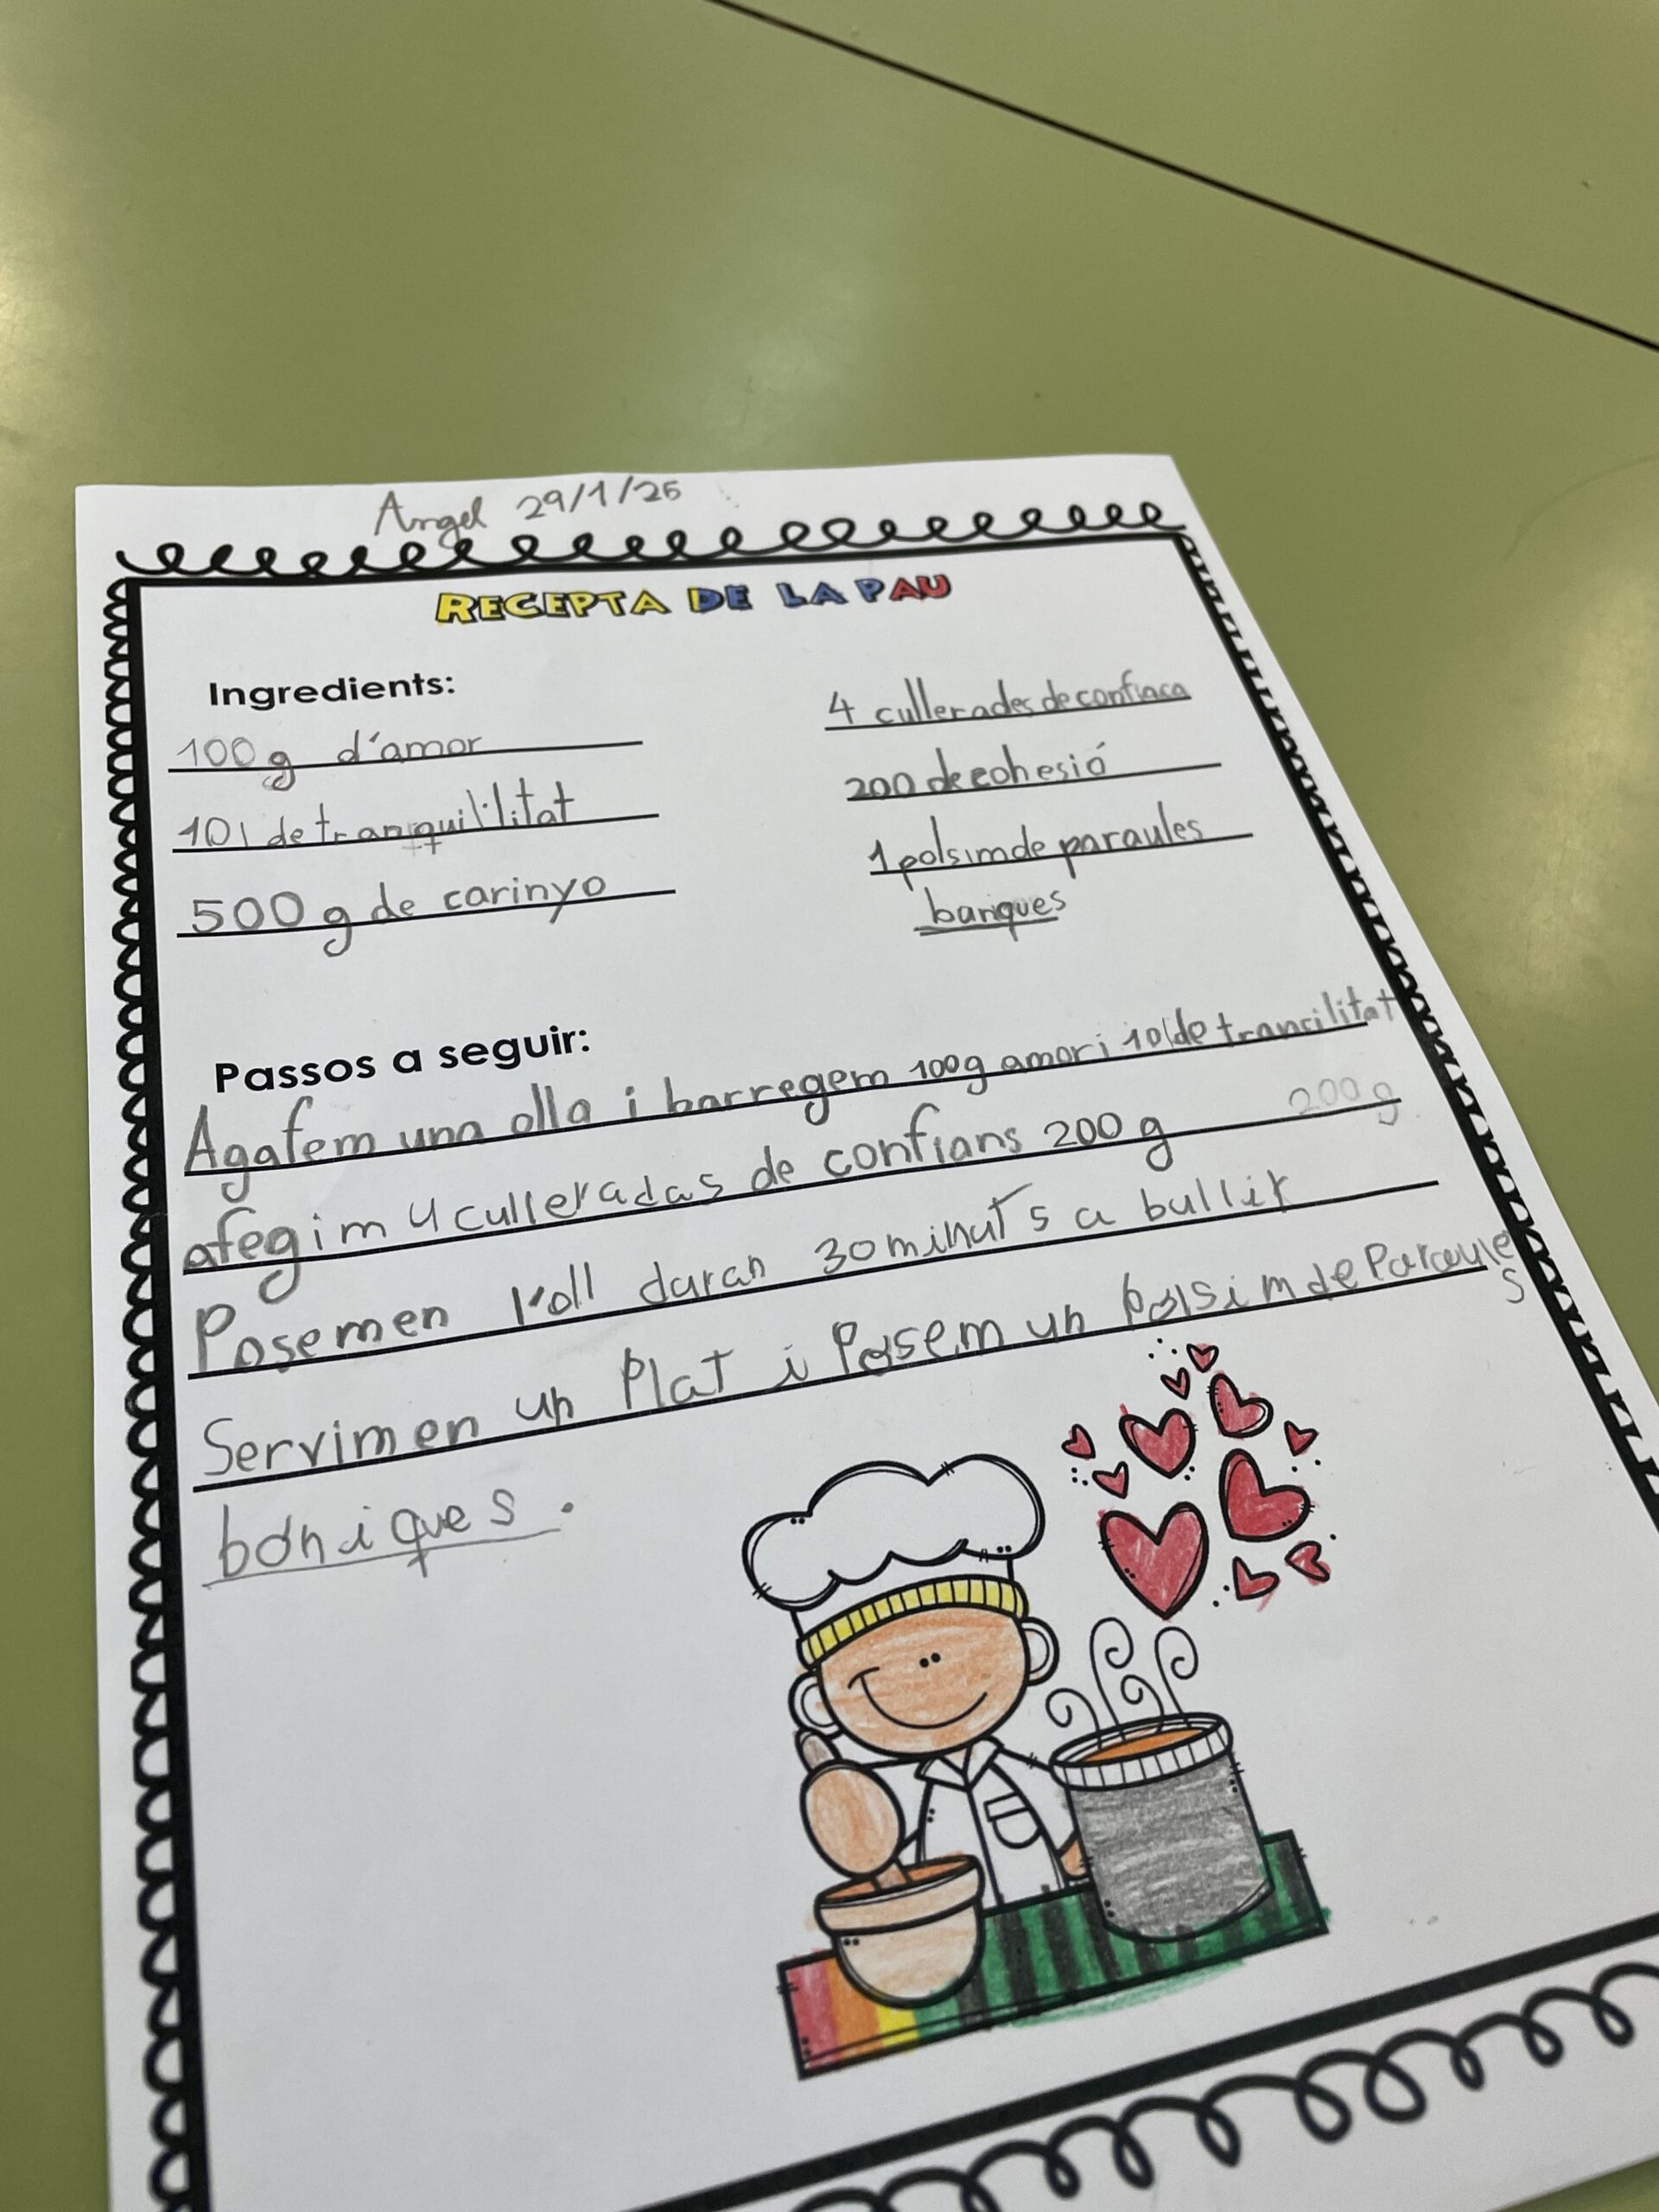 Angel 29/1/26
RECEPTA DE LA PAU
Ingredients:
100g d'amor
10l de tranquil·litat
500g de carinyo
4 cullerades de confiaca
200 de cohesió
1 polsim de paraules
bariques
Passos a seguir:
Agafem una olla i barregem 100g amor i 10l de trancilitat
afegim 4 culleradas de confians 200g 200g
Posem en l'oll duran 30 minuts a bullir
Servim en un Plat i Posem un polsim de Paraules
boniques.